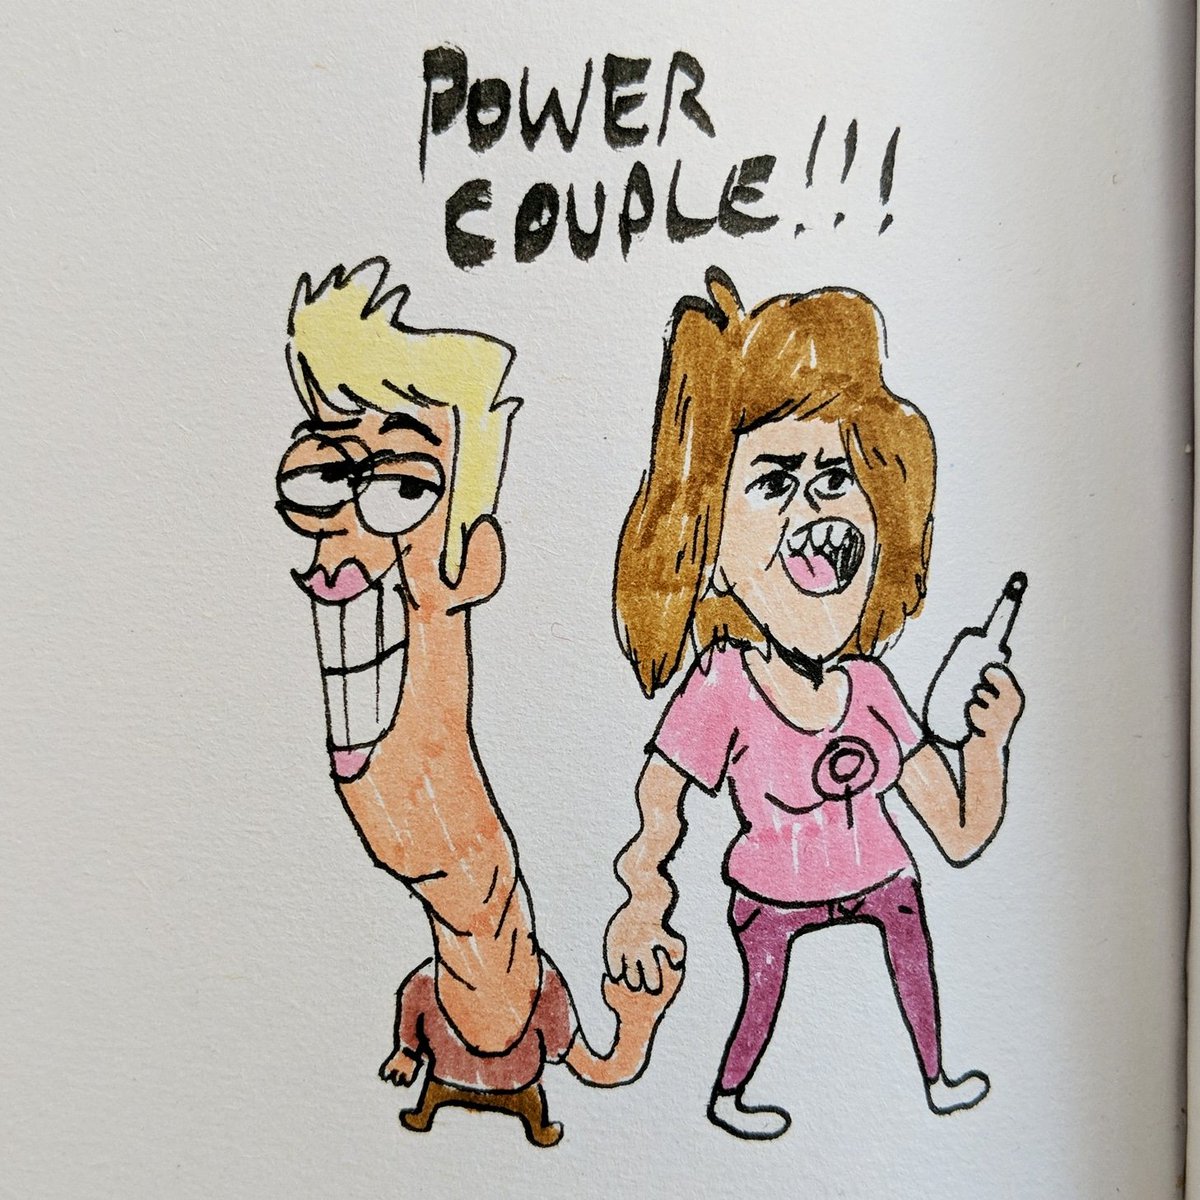 POWER
COUPLE!!!